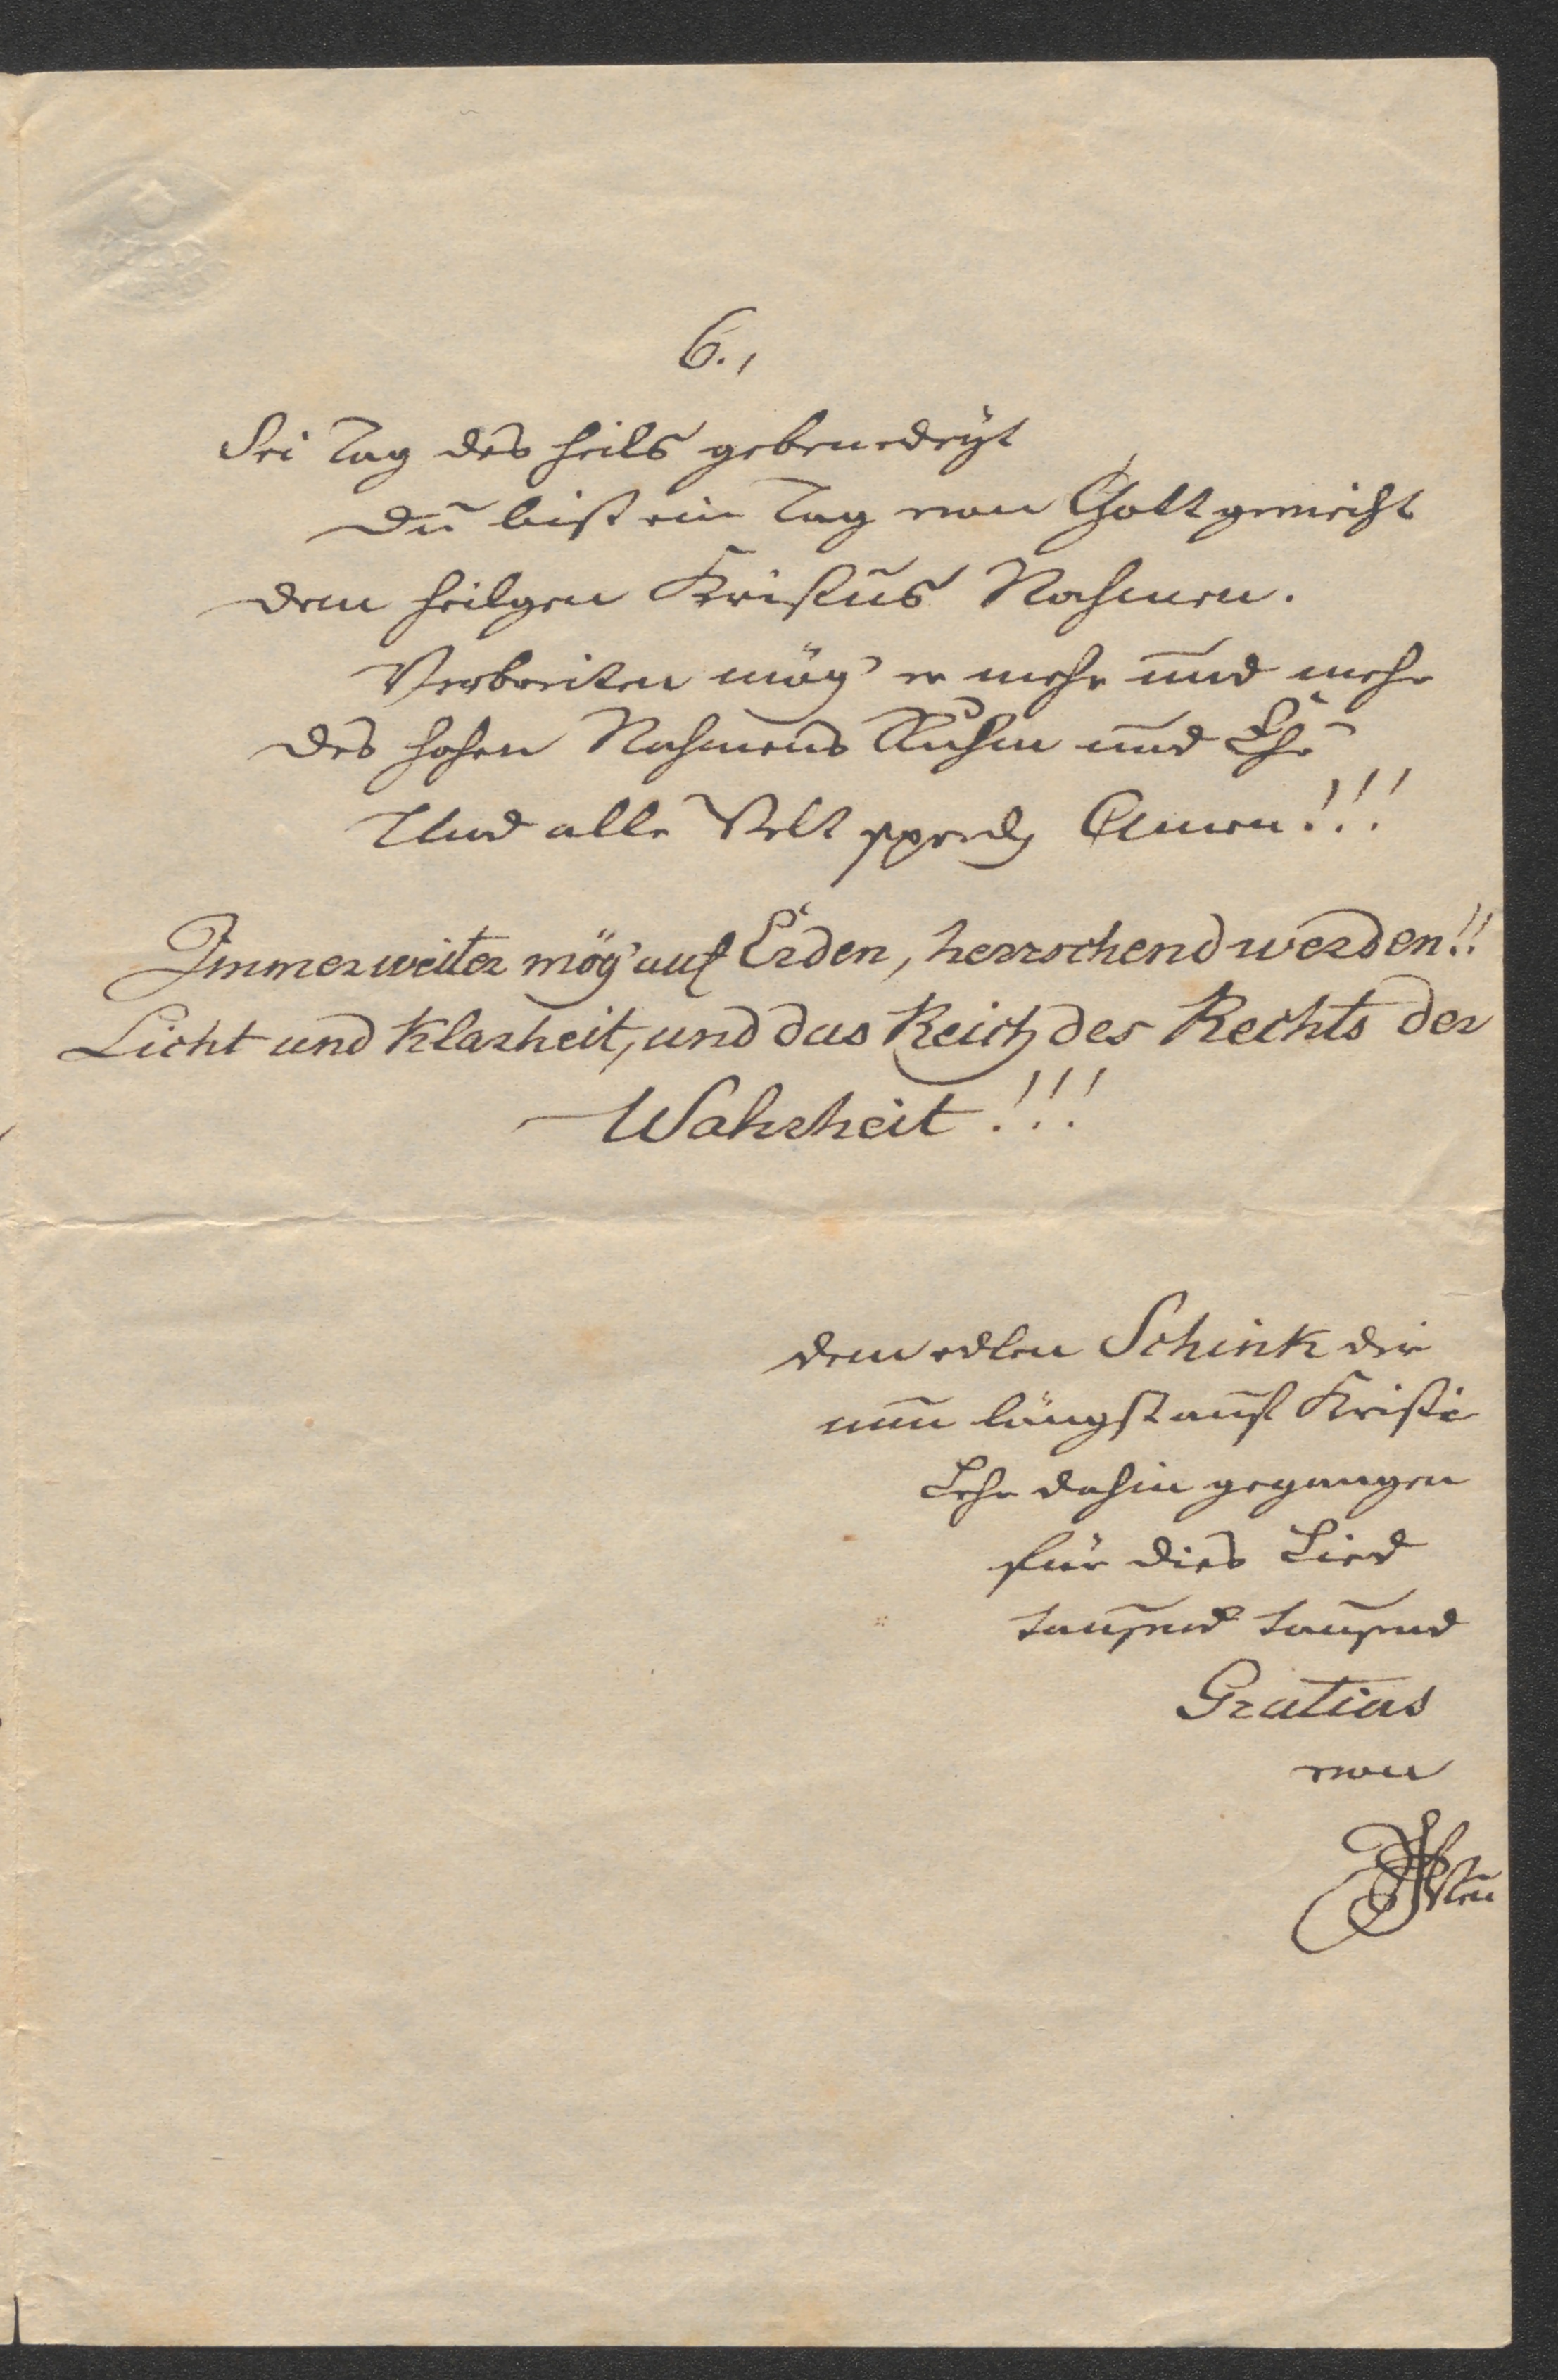 6.,
Sei Tag des Heils gebenedeÿt
Du bist ein Tag von Gott geweiht
dem heilgen Kristus Nahmen.
Verbreiten mög' er mehr und mehr
des hohen Nahmens Ruhm und Ehr
Und alle Welt sprech Amen!!!
Immer weiter mög' auf Erden, herrschend werden!!
Licht und Klarheit, und das Reich des Rechts der
Wahrheit!!!
dem edlen Schink der
nun längst auf Kristi
Lehr dahin gegangen
für dies Lied
tausend tausend
Gratias
von